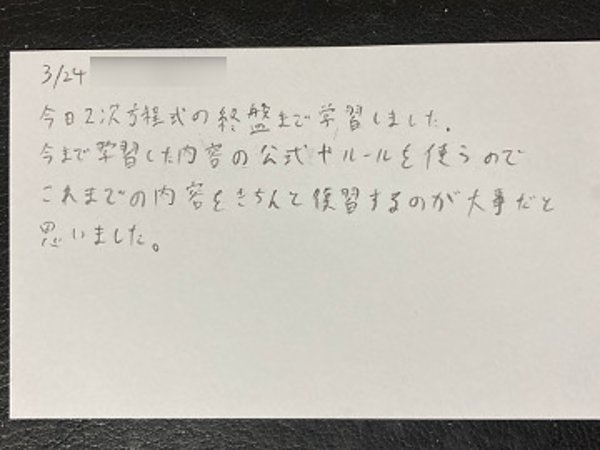 3/24
今日2次方程式の終盤まで学習しました。
今まで学習した内容の公式やルールを使うので
これまでの内容をきちんと復習するのが大事だと
思いました。